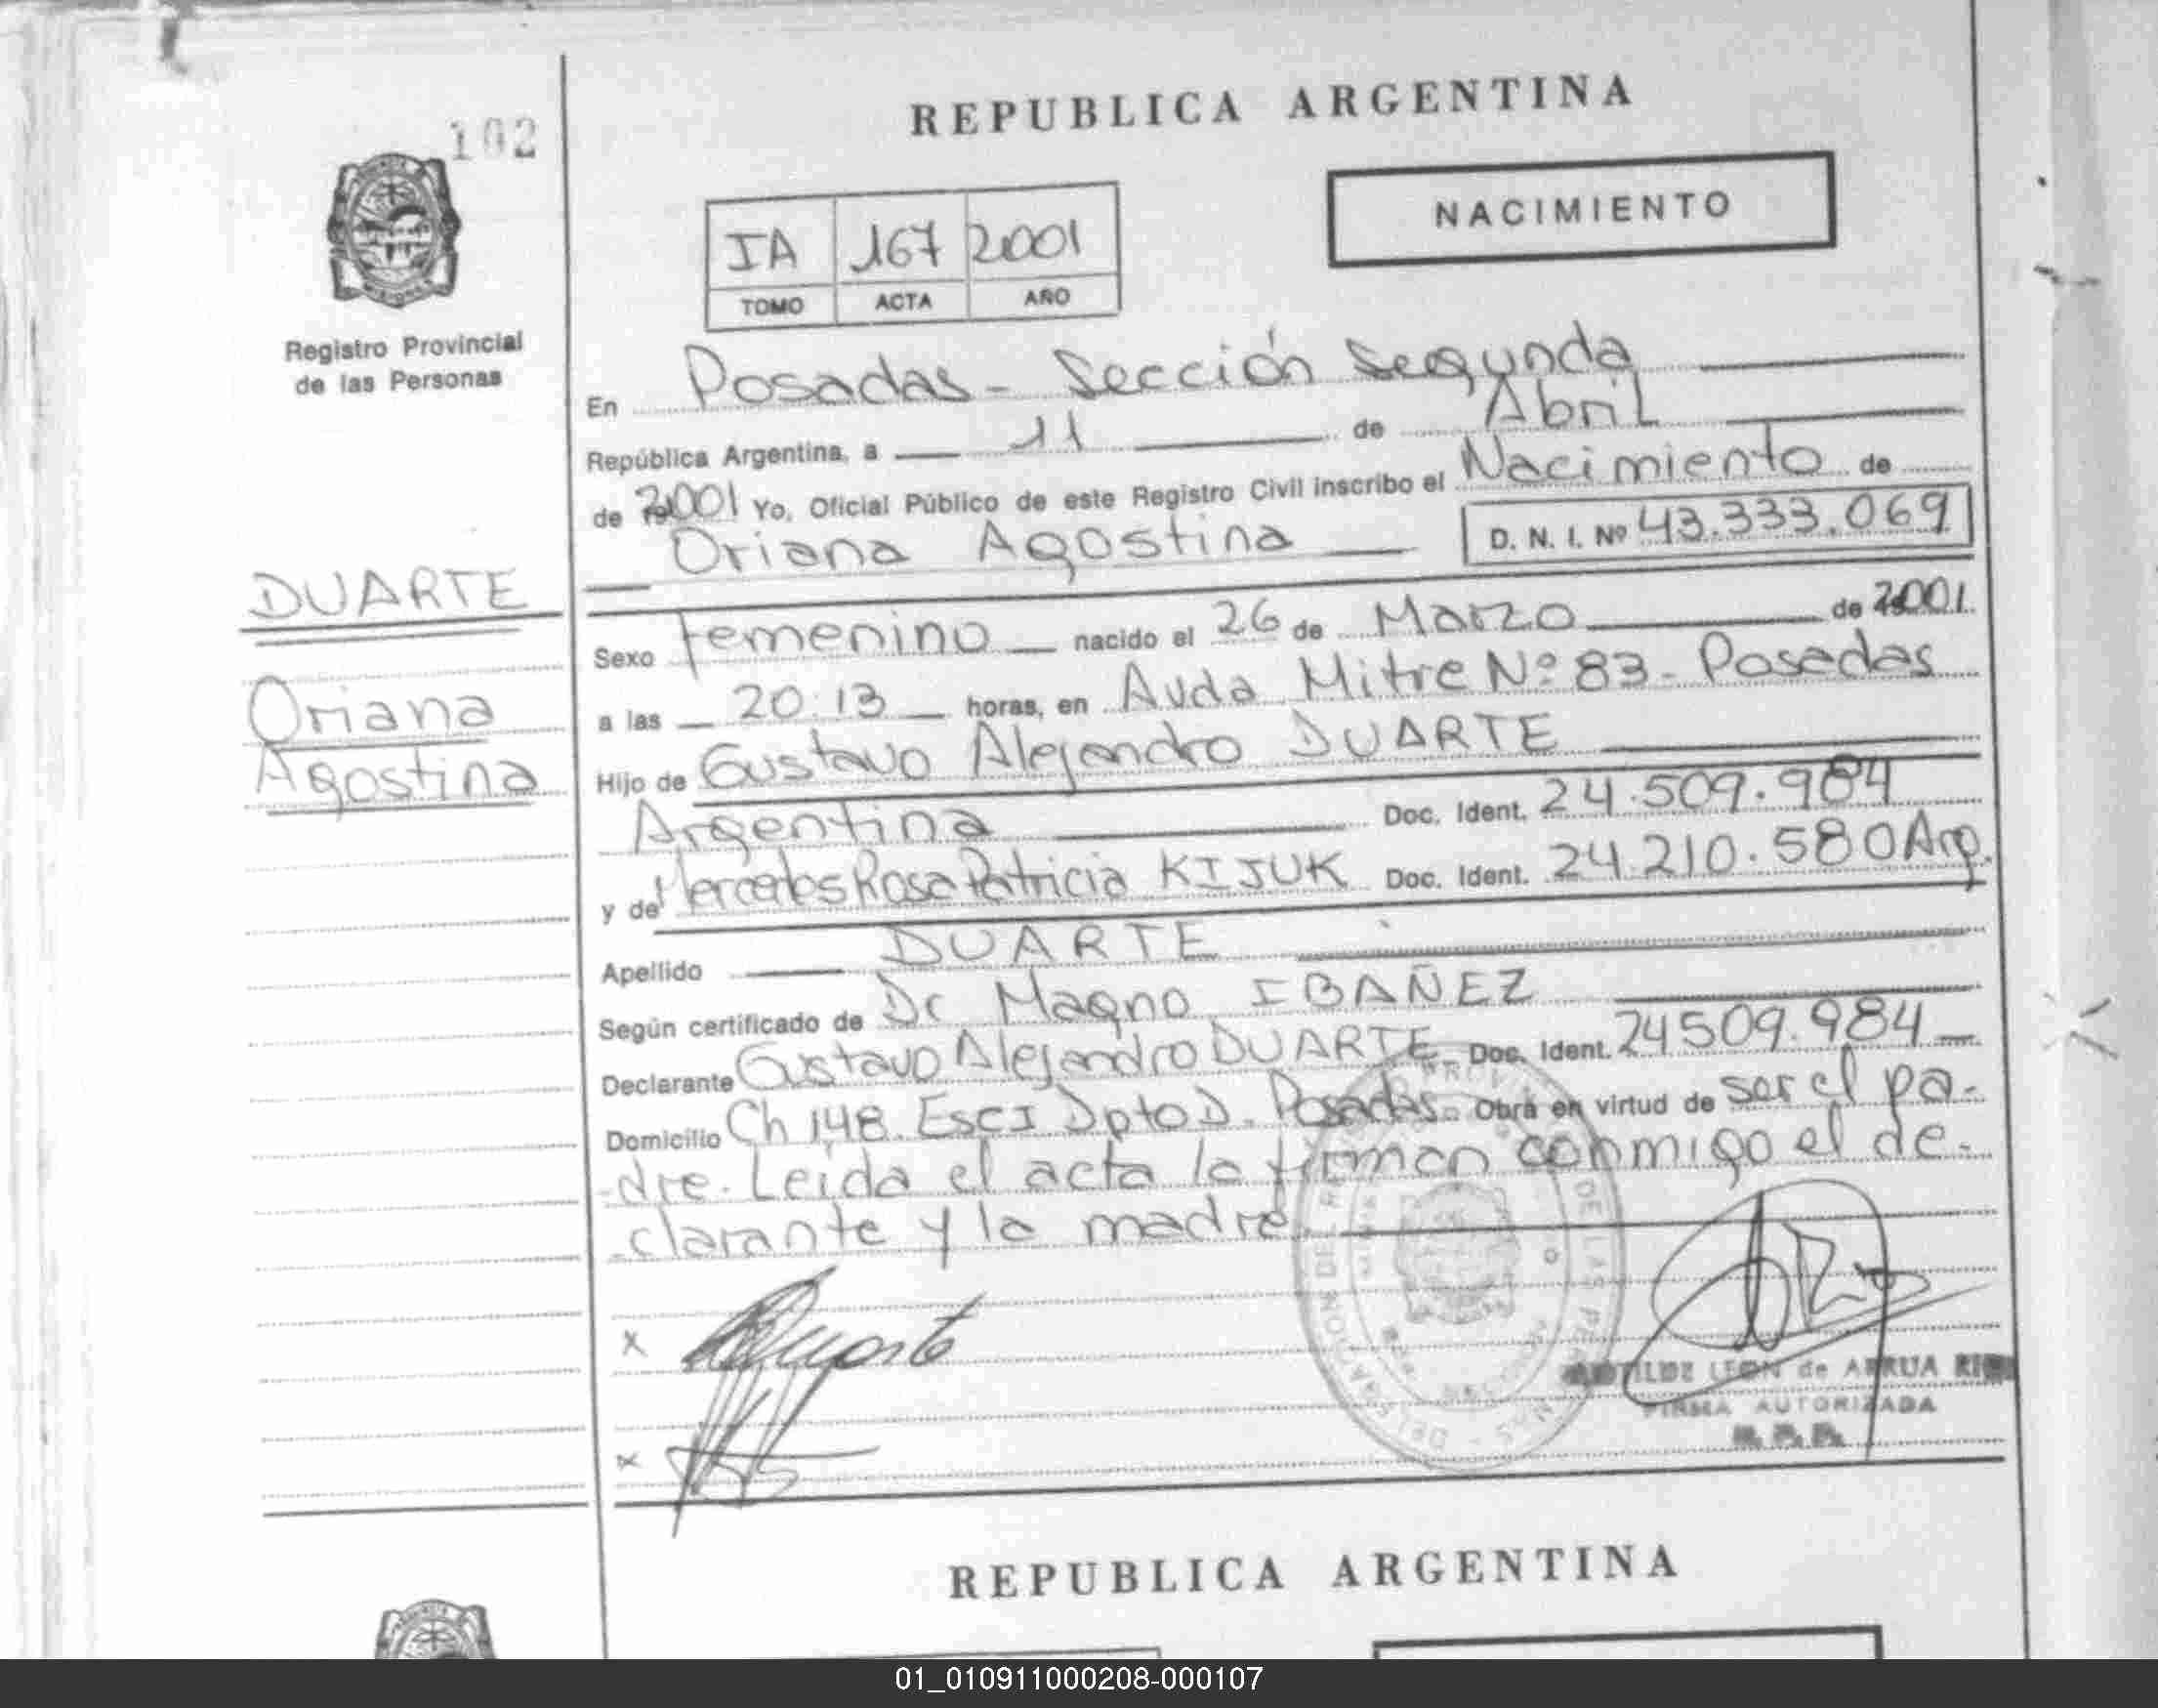 102
REPUBLICA ARGENTINA
NACIMIENTO
IA 167 2001
TOMO ACTA AÑO
Registro Provincial
de las Personas
En Posadas - Sección Segunda
República Argentina, a 11 de Abril
de 2001 Yo, Oficial Público de este Registro Civil inscribo el Nacimiento de
Oriana Agostina D. N. I. Nº 43.333.069
DUARTE
Oriana
Agostina
Sexo femenino nacido el 26 de Marzo de 2001
a las 20:13 horas, en Avda Mitre Nº 83 - Posadas
Hijo de Gustavo Alejandro DUARTE
Argentina Doc. Ident. 24.509.984
y de Mercedes Rosa Patricia KIJUK Doc. Ident. 24.210.580 Arg.
Apellido DUARTE
Según certificado de Dr Magno IBAÑEZ
Declarante Gustavo Alejandro DUARTE Doc. Ident. 24509.984
Domicilio Ch 148 Esc I Dpto D. Posadas Obra en virtud de ser el pa-
dre. Leída el acta la firman conmigo el de-
clarante y la madre.
x Duarte
x
LEON de ARRUA
FIRMA AUTORIZADA
REPUBLICA ARGENTINA
01_010911000208-000107